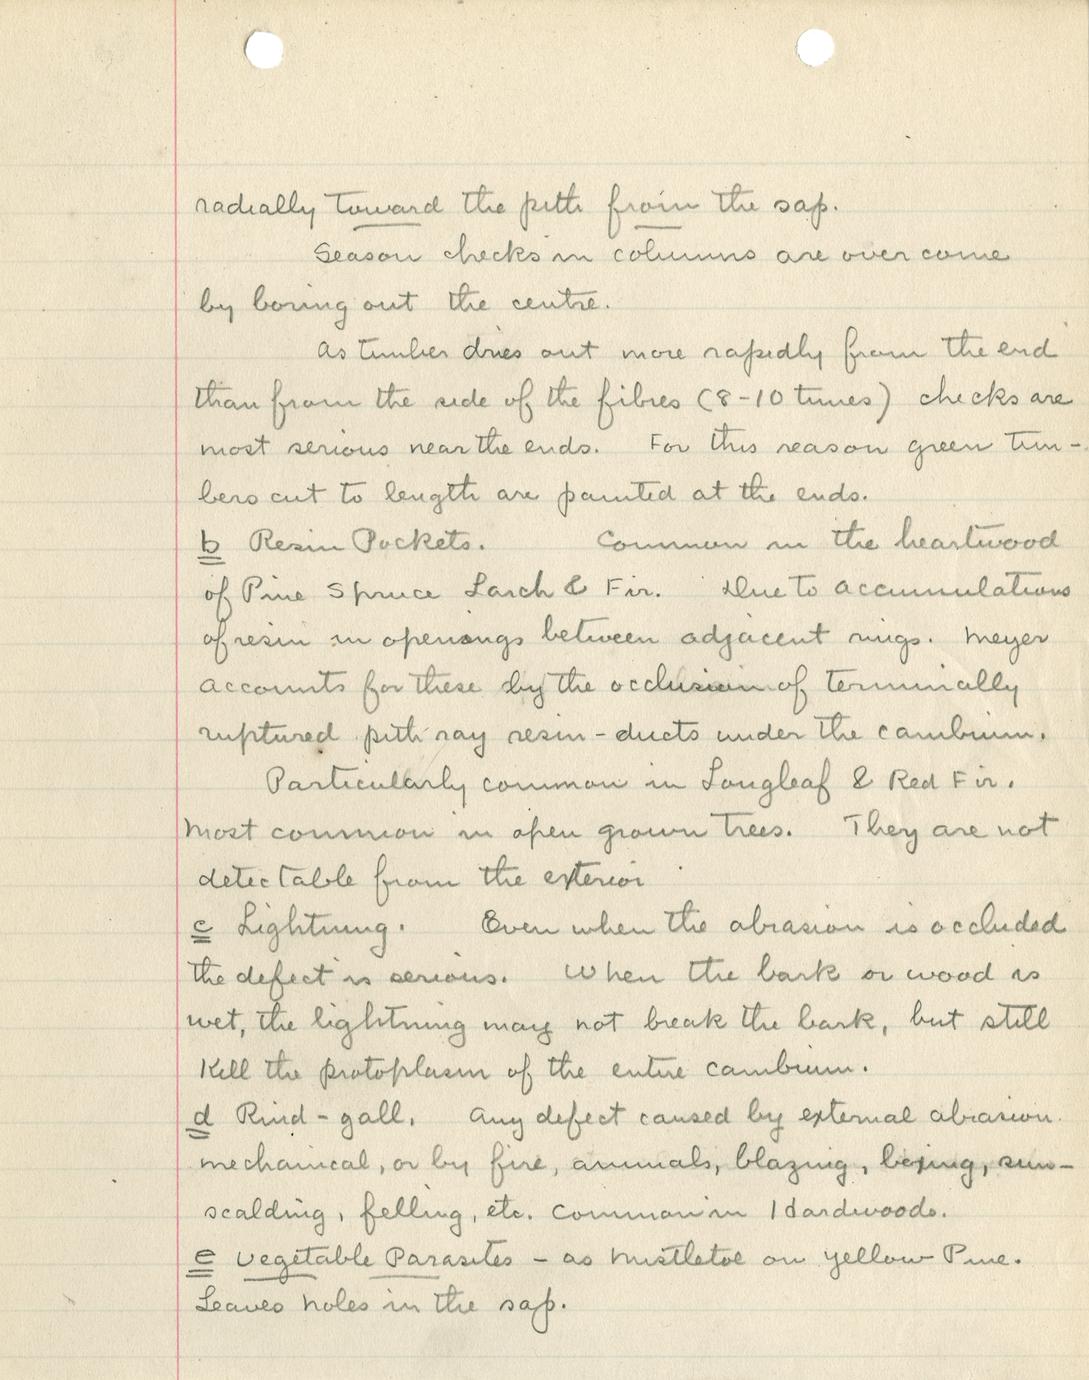 radially toward the pith from the sap.
Season checks in columns are overcome
by boring out the centre.
As timber dries out more rapidly from the end
than from the side of the fibres (8-10 times) checks are
most serious near the ends. For this reason green tim-
bers cut to length are painted at the ends.
b Resin Pockets. Common in the heartwood
of Pine Spruce Larch & Fir. Due to accumulations
of resin in openings between adjacent rings. Meyer
accounts for these by the occlusion of terminally
ruptured pith ray resin-ducts under the cambium.
Particularly common in Longleaf & Red Fir.
Most common in open grown trees. They are not
detectable from the exterior
c Lightning. Even when the abrasion is occluded
the defect is serious. When the bark or wood is
wet, the lightning may not break the bark, but still
Kill the protoplasm of the entire cambium.
d Rind-gall. Any defect caused by external abrasion
mechanical, or by fire, animals, blazing, boxing, sun-
scalding, felling, etc. Common in Hardwoods.
e Vegetable Parasites - as Mistletoe on Yellow Pine.
Leaves holes in the sap.